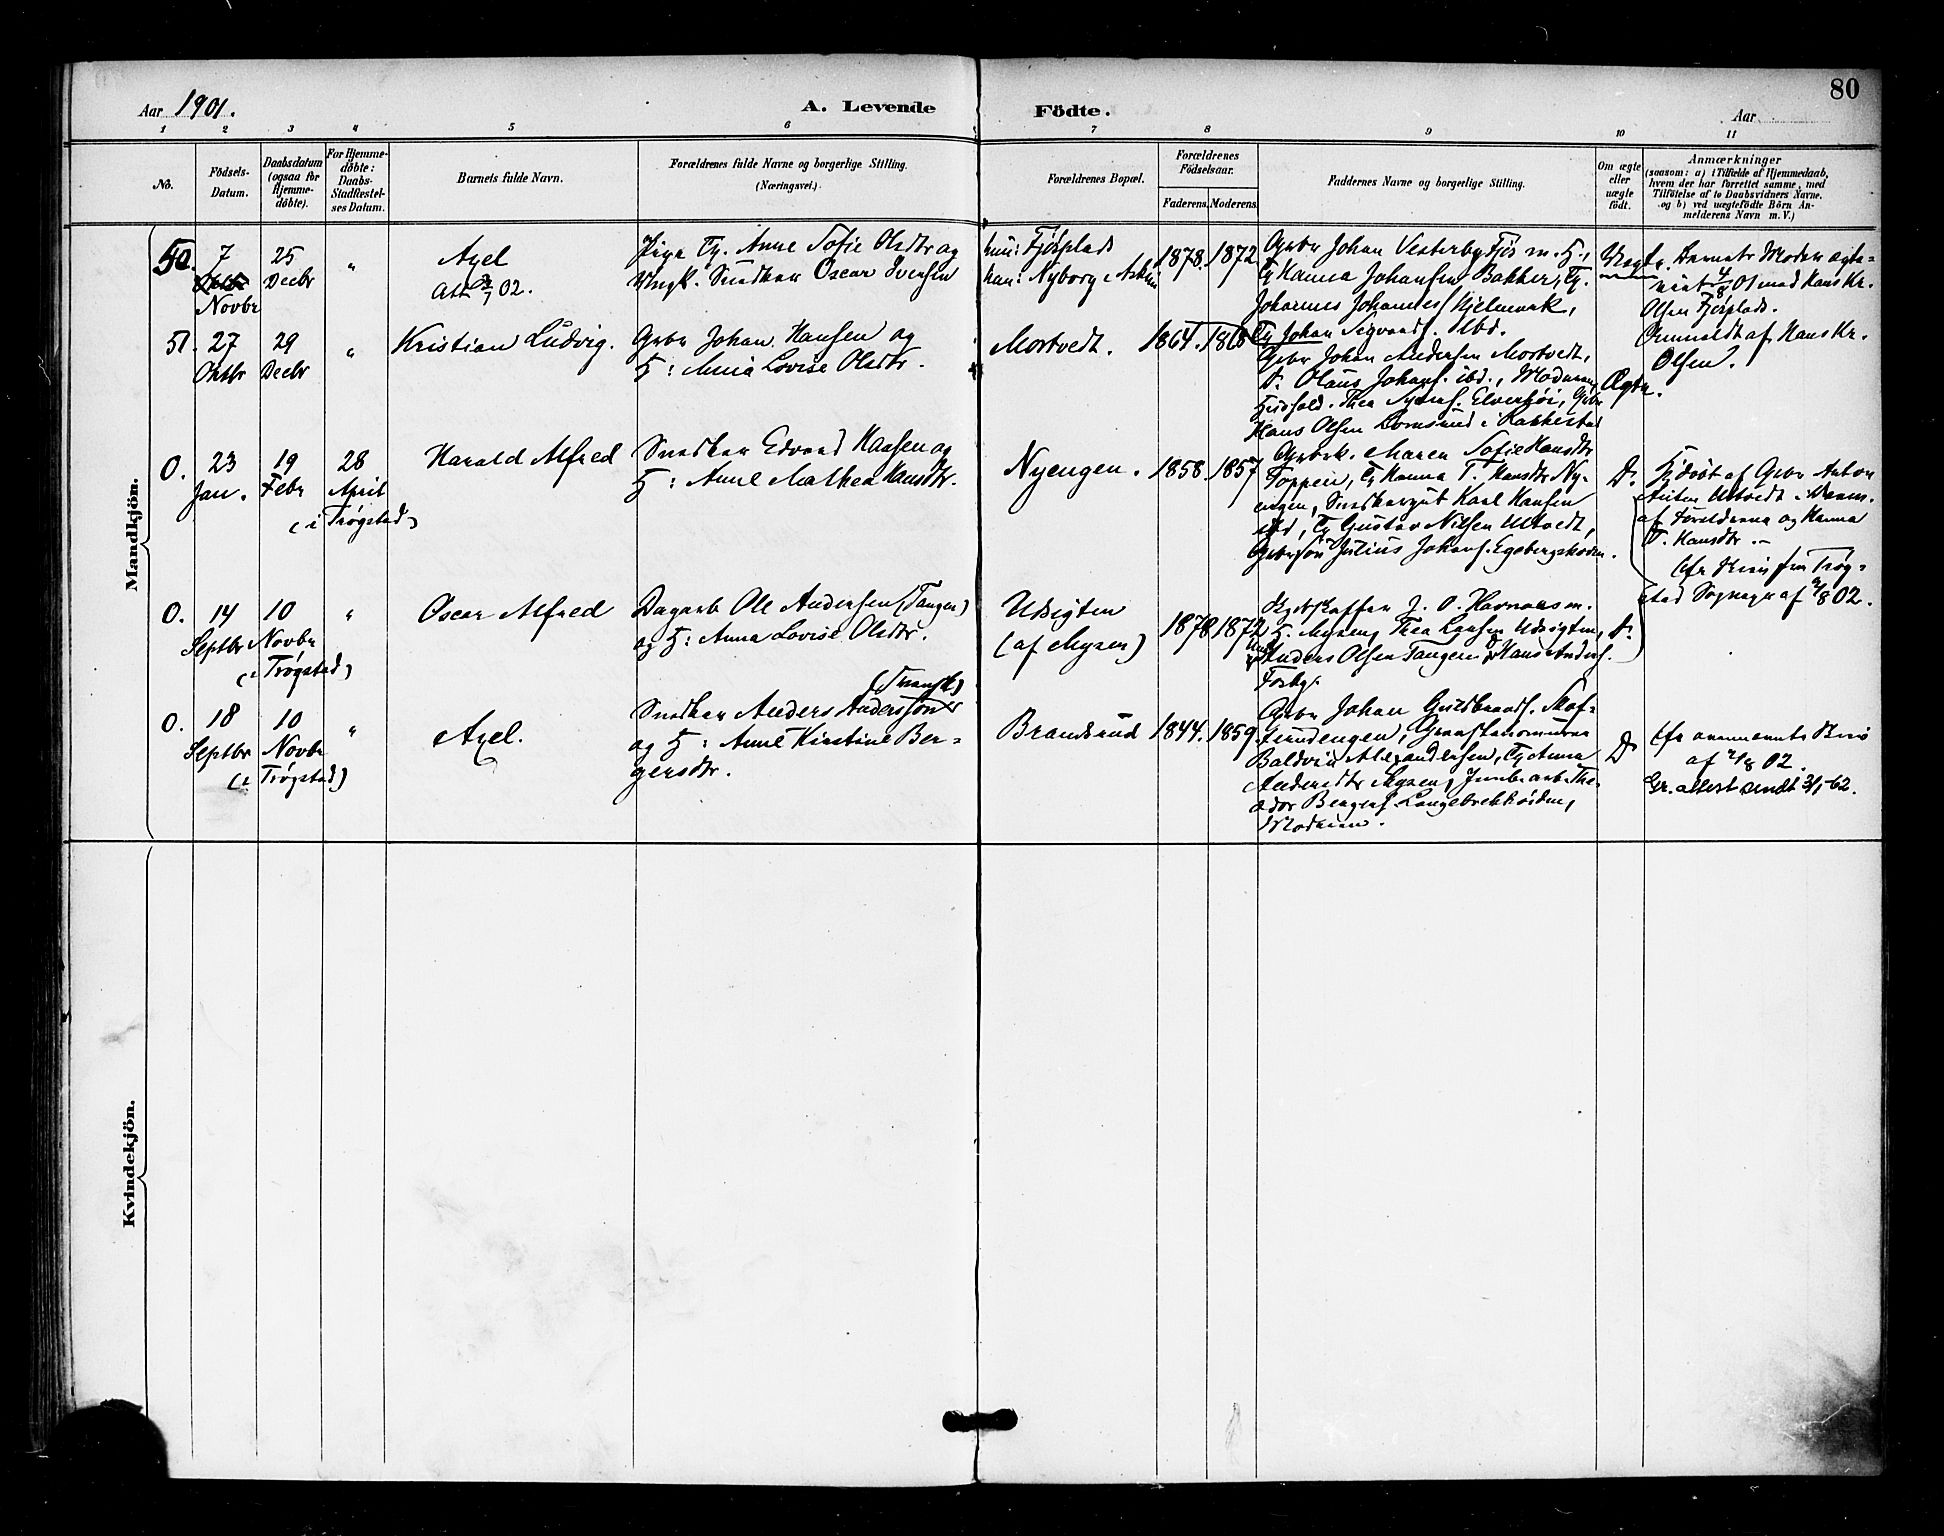 80
Aar 1901.
A. Levende Födte.
Aar
1 2 3 4 5 6 7 8 9 10 11
No.
Födsels-Datum.
Daabsdatum (ogsaa for Hjemme-döbte).
For Hjemme-döbte: Daabs-Stadfæstel-ses Datum.
Barnets fulde Navn.
Forældrenes fulde Navne og borgerlige Stilling.
(Næringsvei.)
Forældrenes Bopæl.
Forældrenes Födselsaar.
Faderens. Moderens.
Faddernes Navne og borgerlige Stilling.
Om ægte eller uægte födt.
Anmærkninger
(saasom: a) i Tilfælde af Hjemmedaab,
hvem der har forrettet samme, med
Tilföielse af to Daabsvidners Navne.
og b) ved uægtefödte Börn An-
melderens Navn m. V.)
Mandkjön.
50. 7 Novbr
25 Decbr
"
Axel
Att 02.
Pige Anne Sofie Olsdtr og
Ungk. Snedker Oscar Iversen
hun: Fjøsplads
han: Nyborg i Askim
1878. 1872
Gbr Johan Vesterby Fjøs m. H.,
Hanna Johansen Bakker,
Johannes Johannes Hjelmark,
Johan Sigvards. ibd.
Uægte.
Barnets Moder ægte-
viet 4/8 01 med Hans Kr.
Olsen Fjøsplads.
Anmeldt af Hans Kr.
Olsen.
51. 27 Oktbr
29 Decbr
"
Kristian Ludvig.
Gbr Johan Hansen og
H: Anna Lovise Olsdtr.
Mortvedt.
1864. 1868
Gbr Johan Andersen Mortvedt,
Olaus Johans. ibd., Moderen,
Thea Elverhøi, Gbr
Hans Olsen Lomsund i Rakkestad
Ægte.
0. 23 Jan.
19 Febr
28 April
(i Trøgstad)
Harald Alfred
Snedker Edvard Hansen og
H: Anne Mathea Hansdtr.
Nyengen.
1858. 1857
Maren Sofie Hansdtr
Toppen, Hanna T. Hansdtr Ny-
engen, Snedkergut Karl Hansen
ibd, Gustav Nilsen Utvedt,
Gbrsøn Julius Johans. Egebergskoden.
Do
Hjdøbt af Gbr Anton
Utvedt i Nærv.
af Forældrene og Hanna
T. Hansdtr.
Cfr Skriv fra Trøg-
stad Sognepr af 2/8 02.
0. 14 Septbr
10 Novbr
(i Trøgstad)
"
Oscar Alfred
Dagarb Ole Andersen (Tangen)
og H: Anna Lovise Olsdtr.
Udsigten
(af Mysen)
1878 1872
J. O. Havnaas m.
H. Mysen, Thea Larsen Udsigten,
Anders Olsen Tangen, Hans Anders.
Fosby.
Do
0. 18 Septbr
10 Novbr
(i Trøgstad)
"
Axel.
(Svensk)
Snedker Anders Andersson
og H: Anne Kirstine Ber-
gersdtr.
Brandsrud
1844. 1859.
Gbr Johan Guldbrands.
Baldvin Alexandersen, Anna
Andersdtr Mysen, Jernbanearb The-
odor Bergers. Langebrekkøien,
Moderen.
Do
Cfr ovennævnte Skriv
af 2/8 02.
Gr. attest sendt 3/1-62.
Kvindekjön.